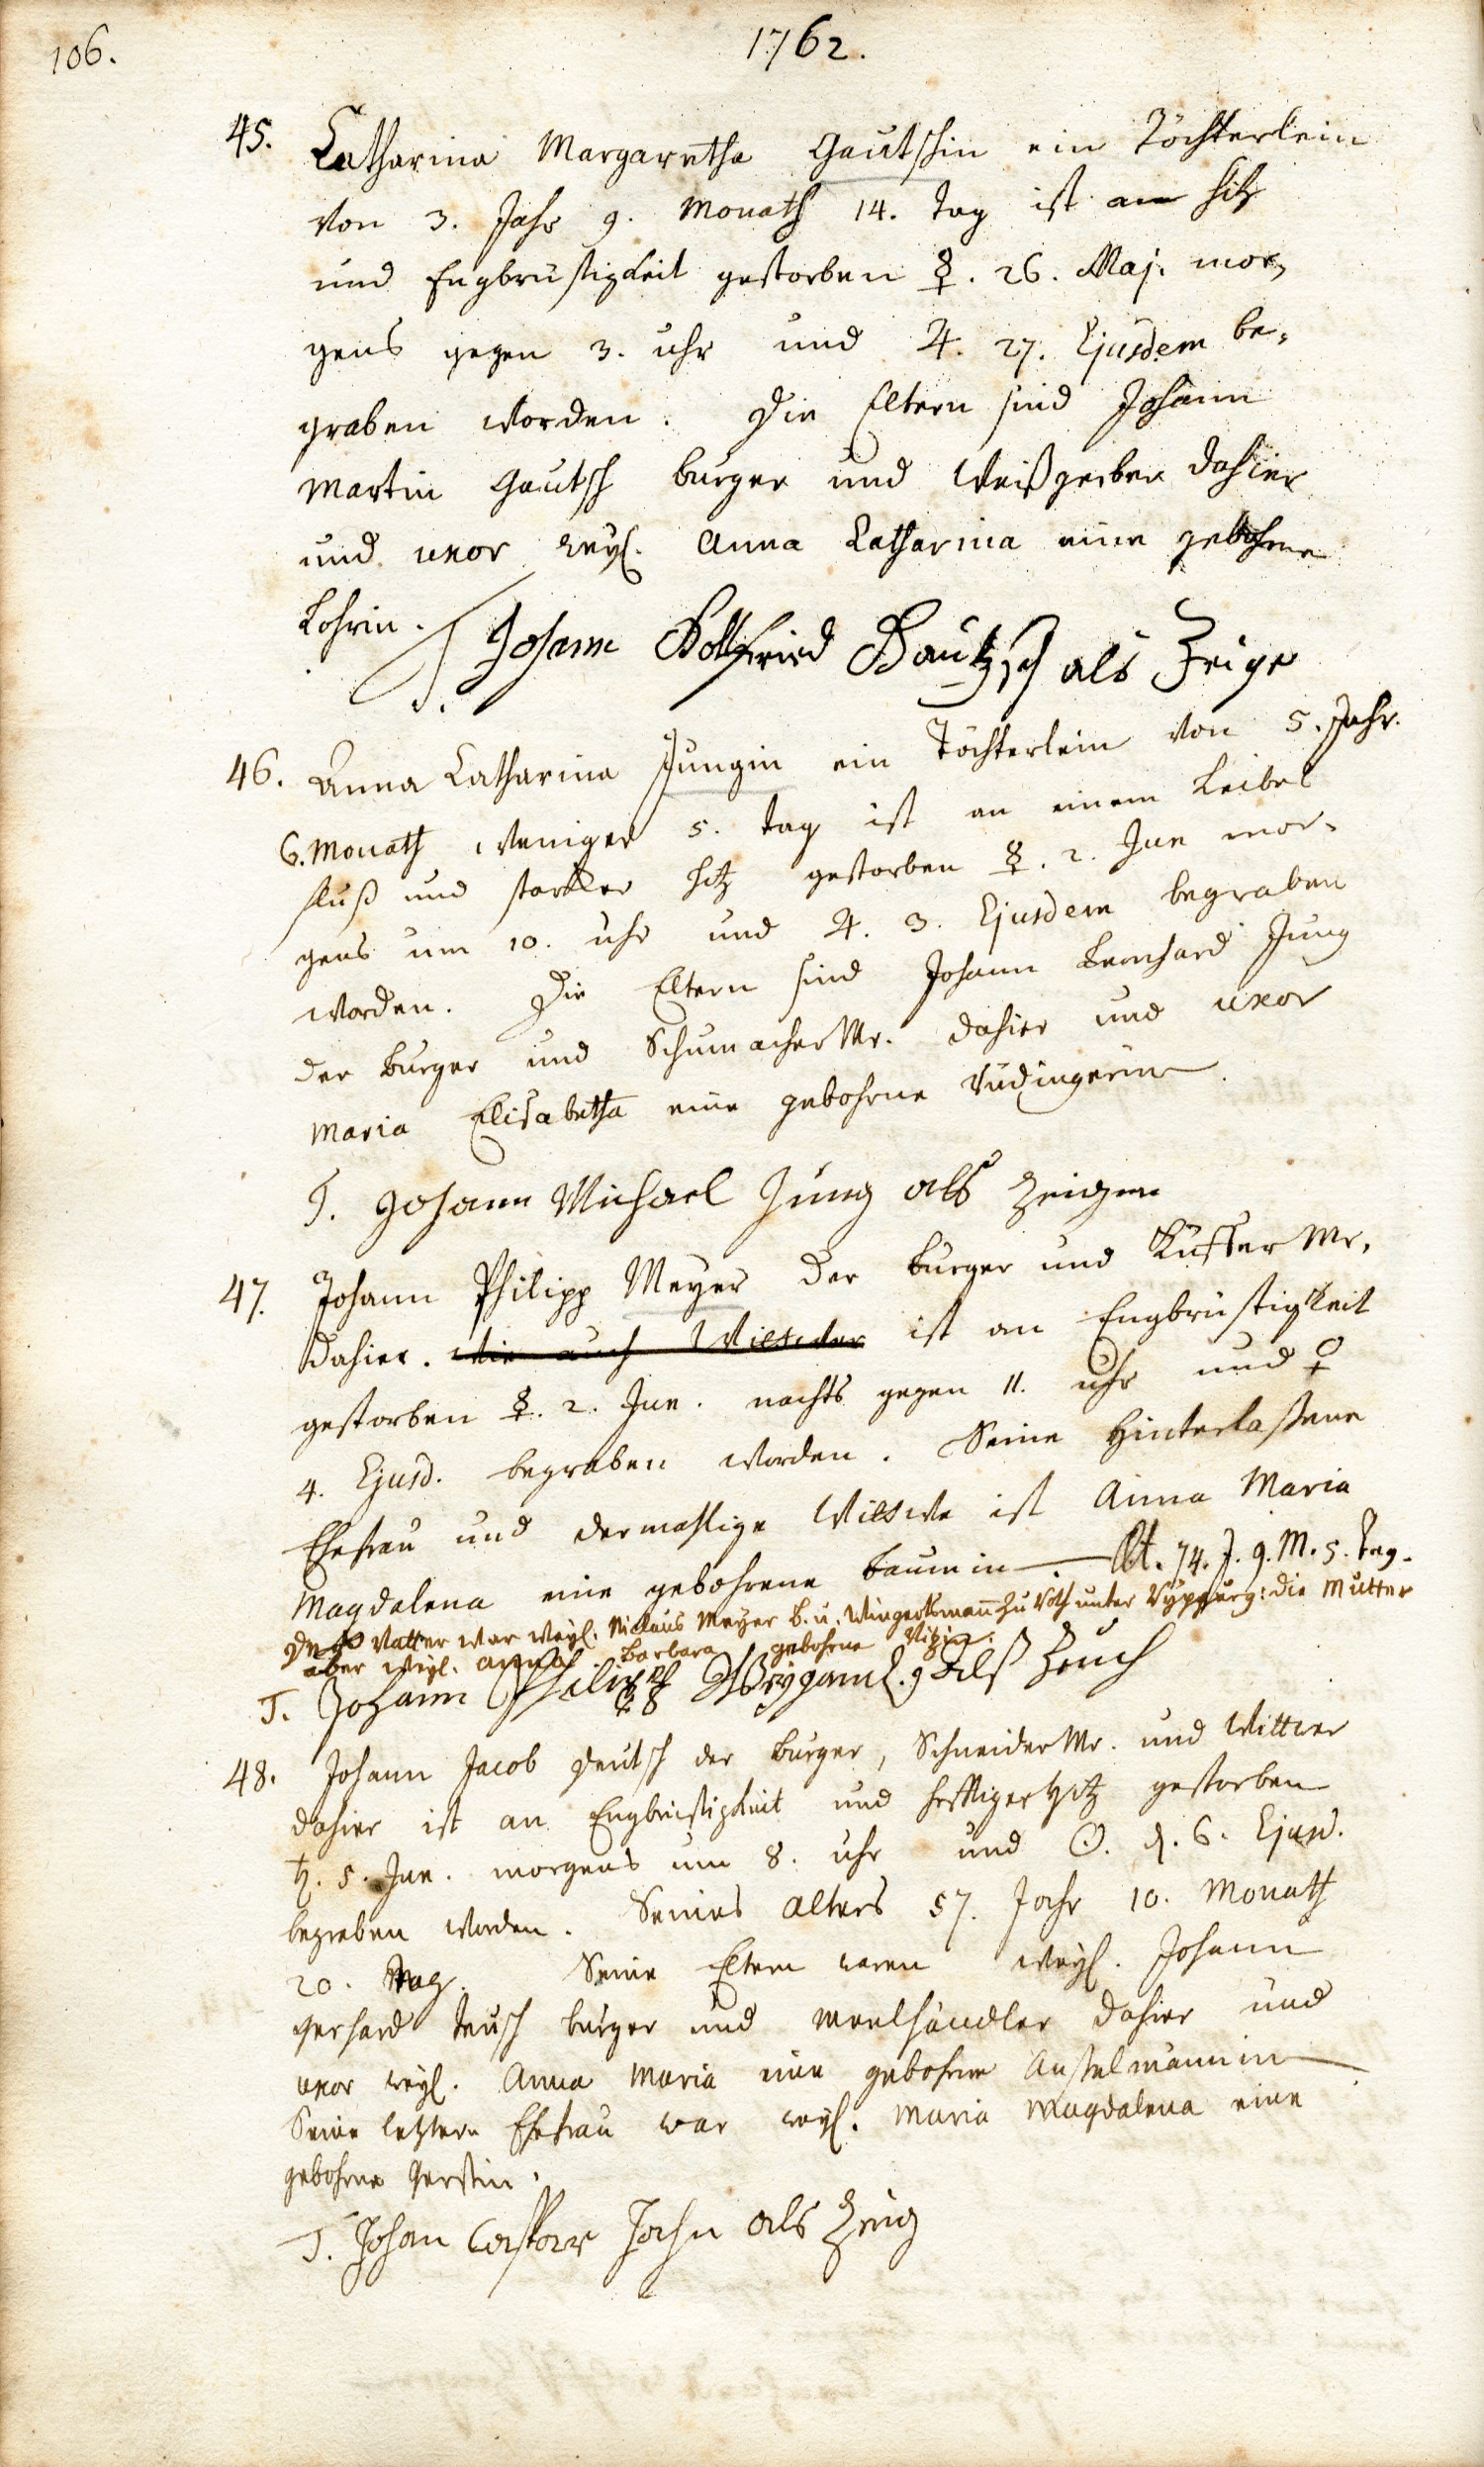 106.
1762.
45. Catharina Margaretha Gautschin ein Töchterlein
von 3. Jahr 9. Monath 14. tag ist am hitz
und Engbrüstigkeit gestorben ☿. 26. Maj. mor,
gens gegen 3. uhr und ♃. 27. Ejusdem be,
graben worden. Die Eltern sind Johann
Martin Gautsch burger und Weißgerber dahier
und uxor weyl. Anna Catharina eine gebohrne
Lohrin.
Johann Gottfried Gautzsch als Zeige
46. Anna Catharina Jungin ein Töchterlein von 5. Jahr.
6. Monath weniger 5. tag ist an einem Leibel
fluß und starcker hitz gestorben ☿. 2. Jun mor,
gens um 10. uhr und ♃. 3. Ejusdem begraben
worden. Die Eltern sind Johann Leonhard Jung
der burger und Schumacher Mr. dahier und uxor
Maria Elisabetha eine gebohrne Rüdingerin.
T. Johann Michael Jung als Zeigen
47. Johann Philipp Meyer der burger und Küffer Mr,
dahier. wie auch Wittwer ist an Engbrüstigkeit
gestorben ☿. 2. Jun. nachts gegen 11. uhr und ♀
4. Ejusd. begraben worden. Seine hinterlaßene
Ehefrau und dermahlige Wittwe ist Anna Maria
Magdalena eine gebohrene baumin. Æt. 74. J. 9. M. 5. tag.
Vatter war weyl. Niclaus Meyer B. u. Wingertsmann zu Roth unter : die Mutter
aber weyl. Anna Barbara gebohrne
T. Johann Philipp Weygand. Alß Zeuch
48. Johann Jacob Deutsch der burger, Schneider Mr. und Wittwer
dahier ist an Engbrüstigkeit und hefftiger hitz gestorben
♄. 5. Jun. morgens um 8. uhr und ☉. d. 6. Ejusd.
begraben worden. Seines alters 57. Jahr 10. Monath
20. tag. Seine Eltern waren weyl. Johann
Gerhard Teusch burger und Meelhändler dahier und
uxor weyl. Anna Maria eine gebohrne Anstelmannin
Seine letztere Ehefrau war weyl. Maria Magdalena eine
gebohrne Gerstin.
T. Johan Caspar Jahn als Zeig